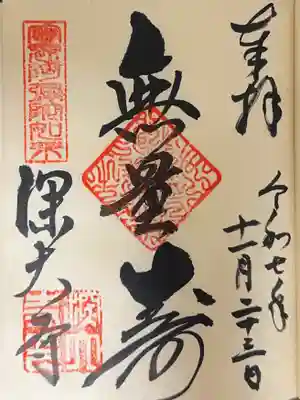 奉拝
令和七年
十一月二十三日
無量寿
深大寺